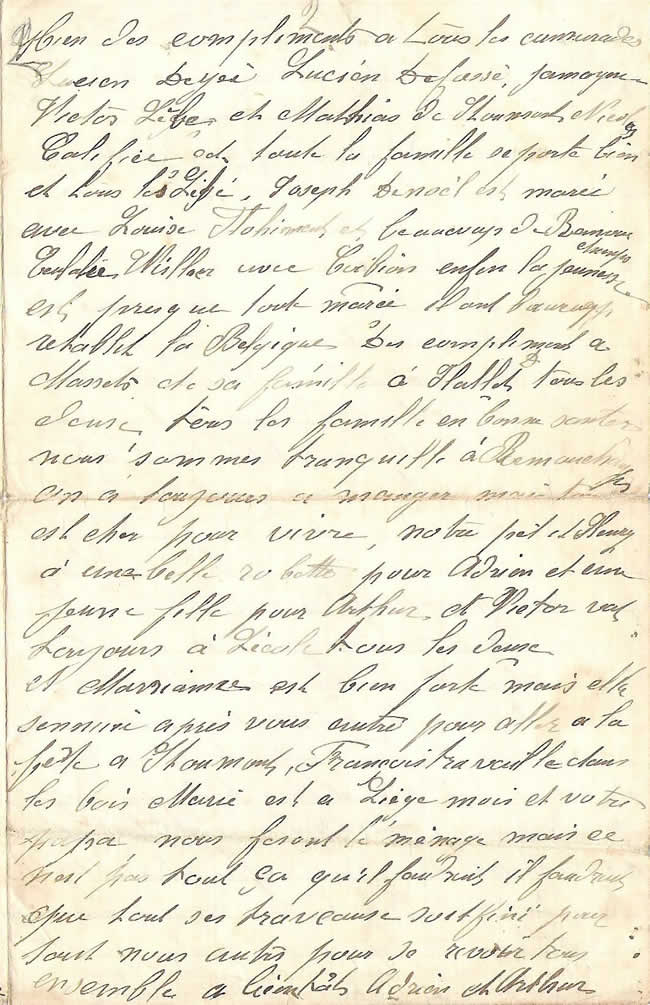 2
Bien des compliments a tous les cammarades
Lucien Lucien Defossé, jamoyne
Victor Lébe et Mathias de Stoumont Nicolas
toute la famille se porte bien
et tous les Joseph Denoël est marié
avec Louise et beaucoup de Remouchamps
avec enfin la jeunesse
est presque tout marié il ont
retablit la Belgique Des compliment a
Massets et sa famille à Hallet tous les
deuse, tous les famille en bonne santer
nous sommes tranquille à Remouchamps
on à toujours a manger mais tout
est cher pour vivre, notre petit Henry
à une belle robette pour Adrien et une
jeune fille pour Arthur, et Victor vat
toujours à Lécole tous les deuse
et Marrianne est bien forte mais elle
sennuie après vous autre pour aller a la
fète a Stoumont, François travaille dans
les bois Marie est a Liège mois et votre
papa nous fesont le ménage mais ce
nest pas tout ça qu'il faudrait il faudrait
que tout ses travause soit fini pour
tout nous autre pour se revoir tous
ensemble a bientôt Adrien et Arthur